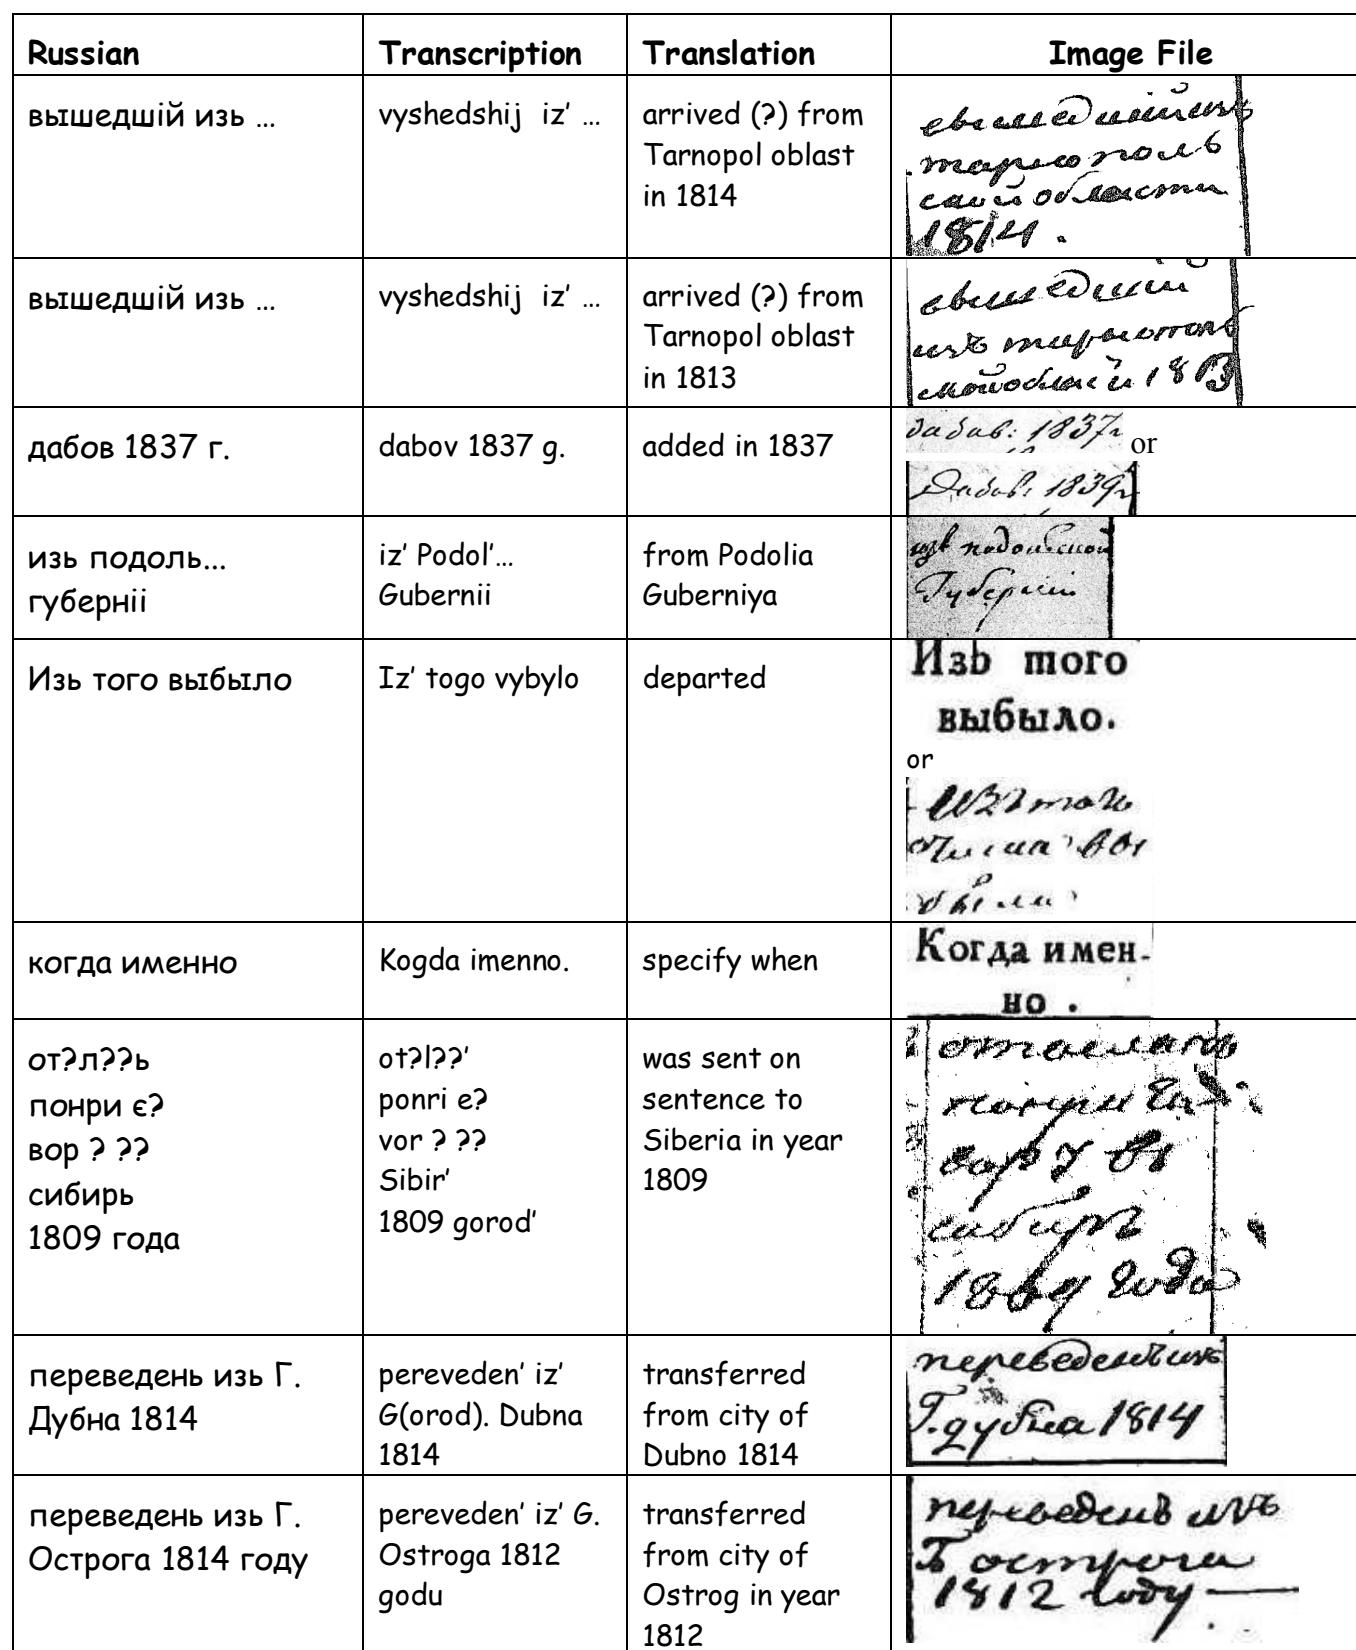 Russian Transcription Translation Image File
вышедшій изь ... vyshedshij iz’ ... arrived (?) from
Tarnopol oblast
in 1814
вышедшійизъ
тарнополь
ской области
1814.
вышедшій изь ... vyshedshij iz’ ... arrived (?) from
Tarnopol oblast
in 1813
вышедшій
изъ тарнополь
ской 1813
дабов 1837 г. dabov 1837 g. added in 1837
дабав: 1837г or
Дабав: 1839г
изь подоль...
губерніі
iz’ Podol’...
Gubernii
from Podolia
Guberniya
изъ подольской
Губерніи
Изь того выбыло Iz’ togo vybylo departed
Изъ того
выбыло.
or
Изъ того
числа вы
было
когда именно Kogda imenno. specify when
Когда имен-
но .
от?л??ь
понри є?
вор ? ??
сибирь
1809 года
ot?l??’
ponri e?
vor ? ??
Sibir’
1809 gorod’
was sent on
sentence to
Siberia in year
1809
отосланъ
вору въ
сибирь
1809 года
переведень изь Г.
Дубна 1814
pereveden’ iz’
G(orod). Dubna
1814
transferred
from city of
Dubno 1814
переведенъ изъ
Г. дубна 1814
переведень изь Г.
Острога 1814 году
pereveden’ iz’ G.
Ostroga 1812
godu
transferred
from city of
Ostrog in year
1812
переведенъ изъ
Г острога
1812 году